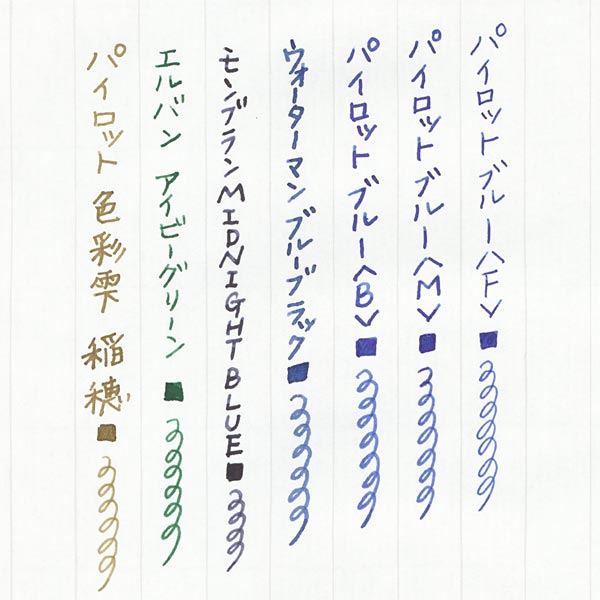 パイロット ブルー〈F〉
パイロット ブルー〈M〉
パイロット ブルー〈B〉
ウォーターマン ブルーブラック
モンブラン MIDNIGHT BLUE
エルバン アイビーグリーン
パイロット 色彩雫 稲穂